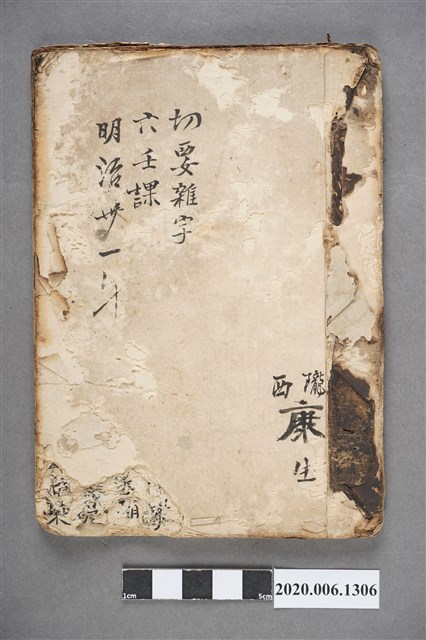 切要雜字
六壬課
明治卅一年
隴西
康生
1cm
5cm
2020.006.1306